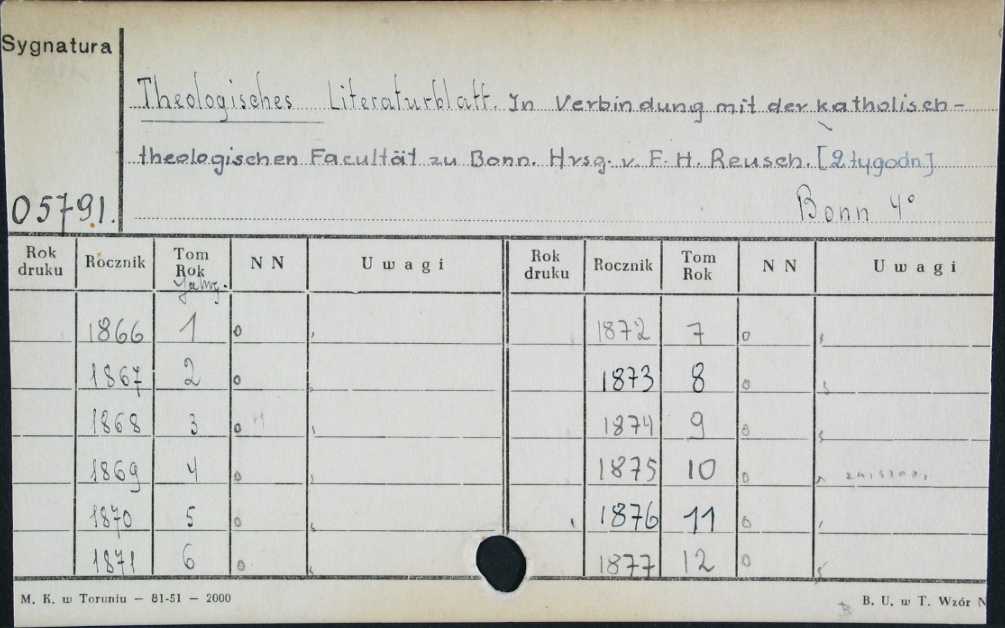 Sygnatura
Theologisches Literaturblatt. In Verbindung mit der katholisch-
theologischen Facultät zu Bonn. Hrsg. v. F. H. Reusch. [2 tygodn]
05791. Bonn 4°
Rok druku Rocznik Tom Rok Jahrg. NN Uwagi Rok druku Rocznik Tom Rok NN Uwagi
1866 1 o 1872 7 o
1867 2 o 1873 8 o
1868 3 o 1874 9 o
1869 4 o 1875 10 o
1870 5 o 1876 11 o
1871 6 o 1877 12 o
M. K. w Toruniu — 81-51 — 2000 B. U. w T. Wzór N